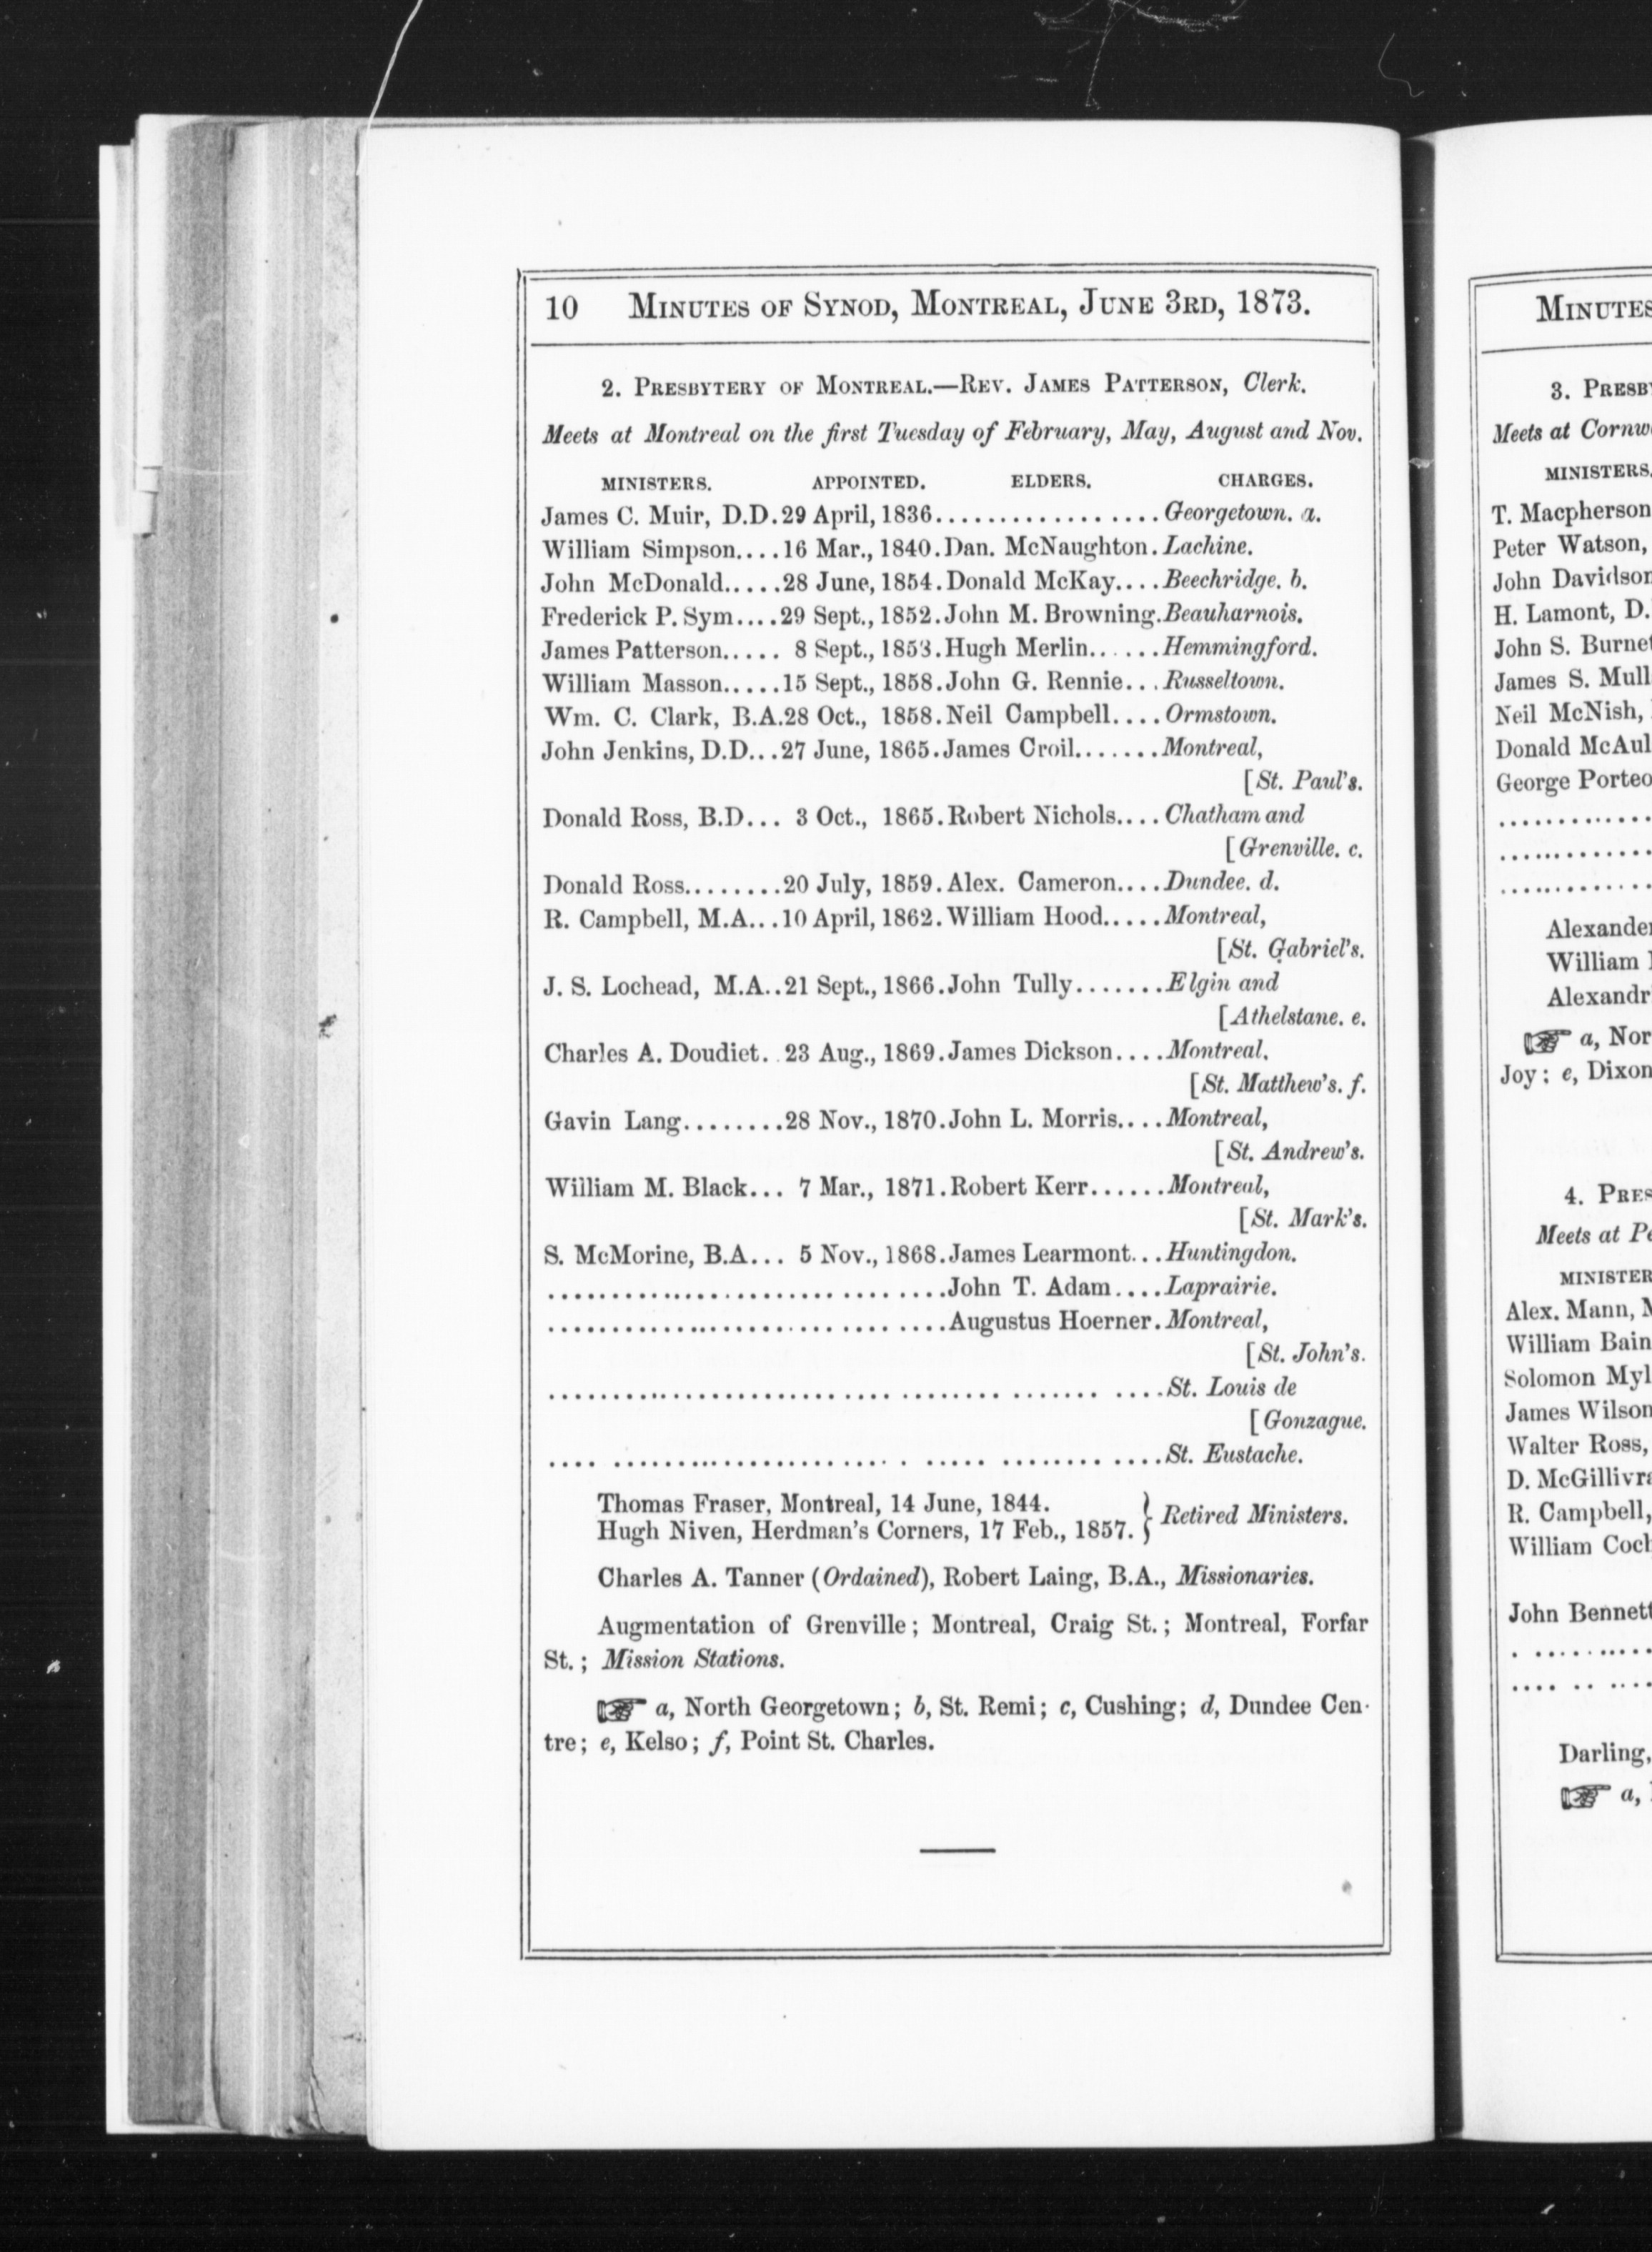 10 MINUTES OF SYNOD, MONTREAL, JUNE 3RD, 1873.
2. PRESBYTERY OF MONTREAL.—REV. JAMES PATTERSON, Clerk.
Meets at Montreal on the first Tuesday of February, May, August and Nov.
MINISTERS. APPOINTED. ELDERS. CHARGES.
James C. Muir, D.D.29 April, 1836.................Georgetown. a.
William Simpson....16 Mar., 1840.Dan. McNaughton.Lachine.
John McDonald.....28 June, 1854.Donald McKay....Beechridge. b.
Frederick P. Sym....29 Sept., 1852.John M. Browning.Beauharnois.
James Patterson..... 8 Sept., 1853.Hugh Merlin......Hemmingford.
William Masson.....15 Sept., 1858.John G. Rennie...Russeltown.
Wm. C. Clark, B.A.28 Oct., 1858.Neil Campbell....Ormstown.
John Jenkins, D.D...27 June, 1865.James Croil.......Montreal,
[St. Paul's.
Donald Ross, B.D... 3 Oct., 1865.Robert Nichols....Chatham and
[Grenville. c.
Donald Ross........20 July, 1859.Alex. Cameron....Dundee. d.
R. Campbell, M.A...10 April, 1862.William Hood.....Montreal,
[St. Gabriel's.
J. S. Lochead, M.A..21 Sept., 1866.John Tully.......Elgin and
[Athelstane. e.
Charles A. Doudiet. .23 Aug., 1869.James Dickson....Montreal.
[St. Matthew's. f.
Gavin Lang........28 Nov., 1870.John L. Morris....Montreal,
[St. Andrew's.
William M. Black... 7 Mar., 1871.Robert Kerr......Montreal,
[St. Mark's.
S. McMorine, B.A... 5 Nov., 1868.James Learmont...Huntingdon.
...............................John T. Adam....Laprairie.
...............................Augustus Hoerner.Montreal,
[St. John's.
............................................St. Louis de
[Gonzague.
............................................St. Eustache.
Thomas Fraser, Montreal, 14 June, 1844.
Hugh Niven, Herdman's Corners, 17 Feb., 1857. } Retired Ministers.
Charles A. Tanner (Ordained), Robert Laing, B.A., Missionaries.
Augmentation of Grenville; Montreal, Craig St.; Montreal, Forfar
St.; Mission Stations.
☞ a, North Georgetown; b, St. Remi; c, Cushing; d, Dundee Cen-
tre; e, Kelso; f, Point St. Charles.
MINUTES
3. PRESB
Meets at Cornw
MINISTERS.
T. Macpherson
Peter Watson,
John Davidson
H. Lamont, D.
John S. Burnet
James S. Mull
Neil McNish,
Donald McAul
George Porteo
Alexander
William
Alexandr
☞ a, Nor
Joy; e, Dixon
4. PRES
Meets at Pe
MINISTER
Alex. Mann, M
William Bain
Solomon Myl
James Wilson
Walter Ross,
D. McGillivra
R. Campbell,
William Coch
John Bennett
Darling,
☞ a,